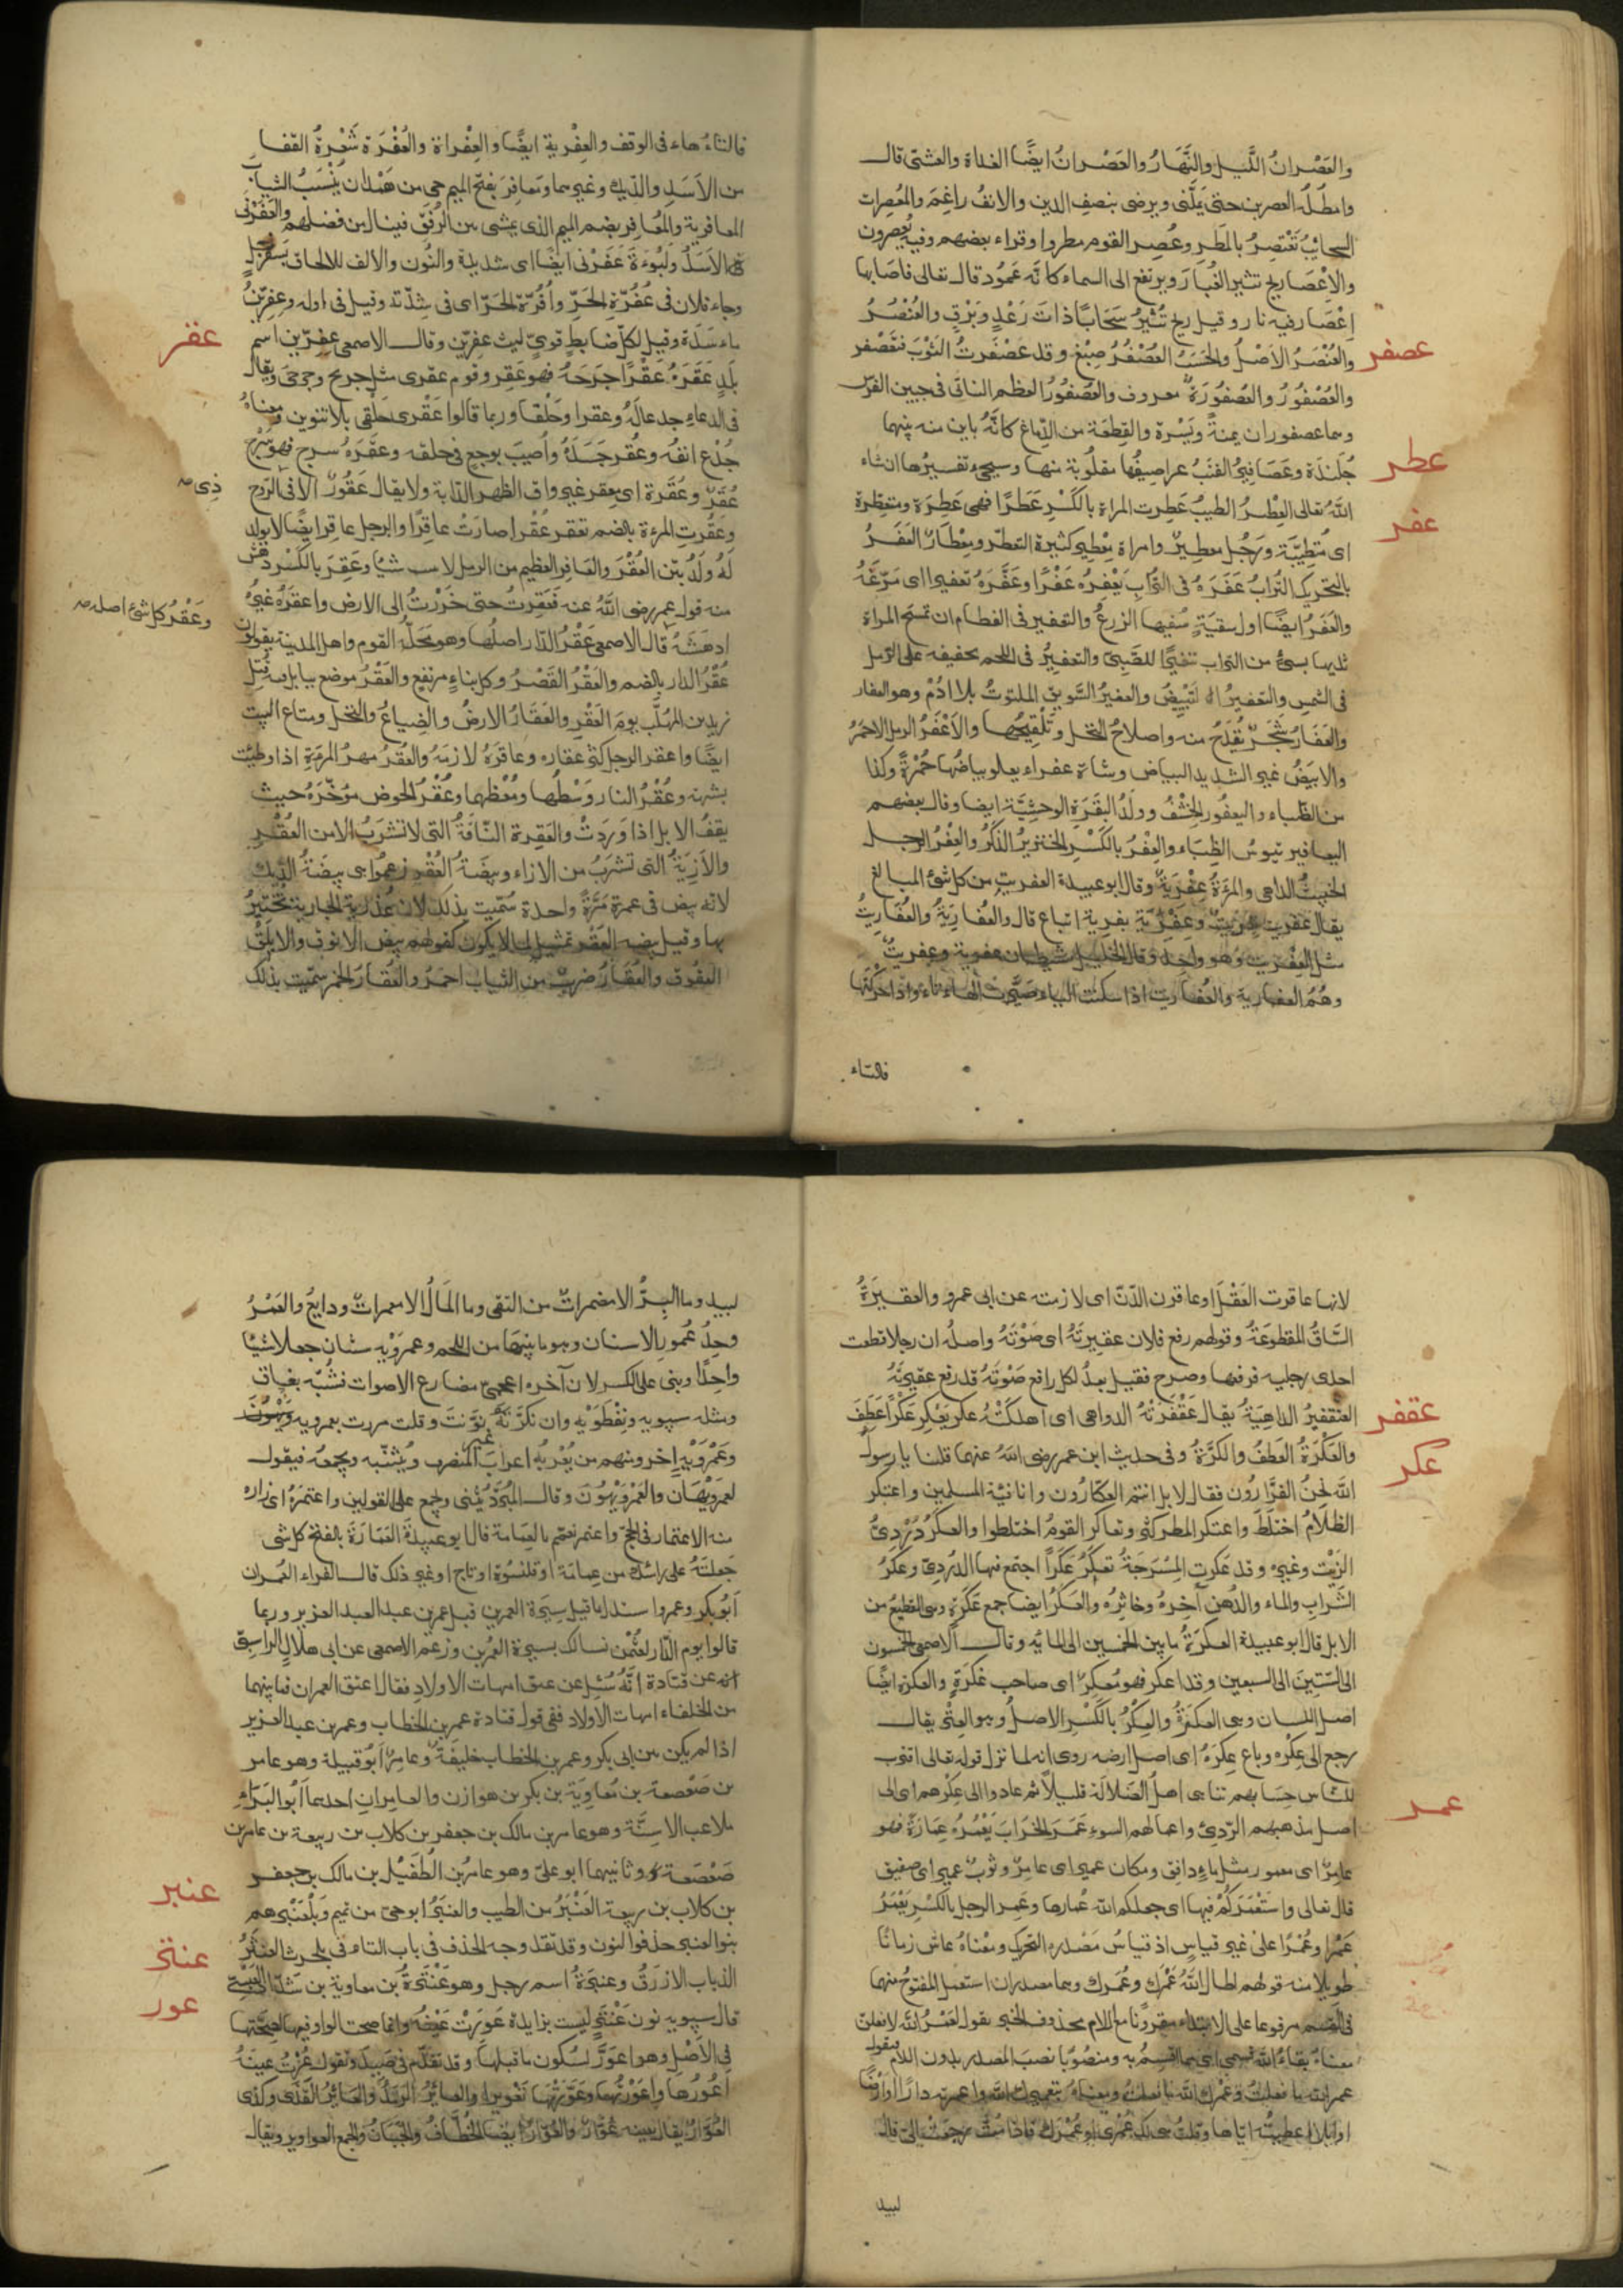 والعَصْرانُ اللَّيل والنَّهَارُ والعَصْرانُ ايضًا الغداة والعشى قال
وامطلُه العصرين حتى يَمَلَّنى ويرضى بنصف الدين والانفُ راغِمُ والمُعصِرات
السحائبُ تَعْتَصِرُ بالمَطَرِ وعُصِر القوم مطروا وقراء بعضهم وفيه يُعصَرون
والاِعْصار ريح تثير الغُبَارَ ويرتفع الى السماء كانَّه عَمُود قال تعالى فاصَابها
اِعْصَار فيه نار وقيل ريح تُثيْرُ سَحَابًا ذاتَ رَعْدٍ وبَرْقٍ والعُنْصُرُ
والعُنْصَرُ الاَصْلُ والحَسَبُ العُصْفُرُ صِبْغ وقد عَصْفَرتُ الثوبَ فتعَصْفر
عصفر
والعُصْفُورُ والعُصْفُورَة معروف والعُصْفُورُ العظم الناتى فى جبين الفرس
وهما عصفوران يمنةً ويَسْرة والقِطعَة من الدِّماغ كانَّه باين منه بينهما
جُلَيْدَة وعَصَافِيرُ القتَبُ عراصيفُها مقلُوبة منها وسيجىء تفسيرُها ان شاء
عطر
اللهُ تعالى العِطْرُ الطيبُ عَطِرت المراة بالكَسْرِ عَطَرًا فهى عَطِرَة ومتعَطِّرة
اى مُتطيِّبَة ورَجُل مِعطِيرٌ وامراة مِعْطِير كثيرة التعطّر ومِعْطَارٌ العَفَرُ
عفر
بالتحريك التُرابُ عَفَرَهُ فى التُرابِ يَعْفِرُه عَفْرًا وعَفَّرَهُ تعفيرا اى مَرّغَهُ
والعَفَرُ ايضًا اول سقيَةٍ سُقيها الزرعُ والتعفير فى الفطام ان تمسَح المراة
ثديها بشىءٍ من التراب تنفيرًا للصَّبِىّ والتعفيرُ فى اللحم تجفيفه على الرمل
فى الشمس والتعفيرُ التبييضُ والعفيرُ السَّويق الملتوتُ بلا ادُمْ وهو العفار
والعَفَارُ شجَرٌ تُقدَحُ منه واصلاحُ النخل وتَلْقِيحُها والاَعْفَرُ الرمل الاحمَرُ
والابيَضُ غير الشديد البياض وشاة عفراء يعلو بياضُها حُمْرَةٌ وكذا
من الظباء واليعفُور الخِشْفُ وولدُ البقَرَةِ الوحشِيَّة ايضا وقال بعضهم
اليعافير تيوسُ الظِبَاء والعِفْرُ بالكَسْرِ الخنزيرُ الذكَرُ والعِفْرُ الرجل
الخبيثُ الداهى والمرءَةُ عِفْرَيَةٌ وقال ابو عبيدة العفريت من كل شئ المبالغ
يقال عفريت نفريت وعِفْريَة نفرية اتباع قال والعُفارِيَةُ والعُفَارِيتُ
مثل العِفْريت وهو واحد وقال الخليل شيطان عفرية وعفريتٌ
وهُمُ العفارية والعَفاريت اذا سكنت الياء صَيَّرت الهاء تاء واذا حركتَها
فالتاء
فالتاءُ هاء فى الوقف والعِفْرية ايضًا والعِفْراة والعُفْرَة شَعْرةُ القفا
من الاَسَدِ والدّيك وغيرهما ومَعافِرُ بفتح الميم حى من هَمْدان يُنْسَبُ الثيابُ
المعافرية والمُعَافِر بضم الميم الذى يمشى مع الرُفَقِ فينال من فضلهم والعَفَرْنى
الاَسَدُ ولَبُوءَة عَفَرْنى ايضًا اى شديدة والنُون والالف للالحاق بسَفَرجلٍ
وجاء فلان فى عُفُرَّةِ الحَرِّ واُفُرَّة الحَرّ اى فى شِدّتِه وقيل فى اوله وعِفِرِّينُ
ماءسَدَة وقيل لكلّ ضابطٍ قوىّ ليث عِفِرِّين وقال الاصمعى عفِرِّين اسم
عقر
بلَدٍ عَقَرَهُ عقْرًا جَرَحَهُ فهو عَقِر وقوم عقرى مثل جريح وجرحى ويقال
فى الدعاء جدعا لَهُ وعقرا وحَلْقا وربما قالوا عَقْرى حَلْقى بلا تنوين ومعناهُ
جُدْعَ انفُه وعُقر جَسَدُه واُصيبَ بوجع فى حلقه وعقَرَهُ سرج
عُقَرٌ وعُقَرة اى يعقر غير واق الظهر الدابة ولا يقال عَقُورٌ الا فى الروح
ذِى صح
وعَقُرت المرءة بالضم تعقر عُقْرا صارَتْ عاقِرًا والرجل عاقر ايضًا لا يولد
لَهُ ولدُ بيّن العُقْر والعَاقِر العظيم من الرمل لا ينبت شيًا وعَقِرَ بالكَسْر دهِشَ
منه قول عمر رضى اللهُ عنه فعَقِرتُ حتى خَرَرْتُ الى الارض واعقَرَهُ غيرُهُ
وعَقْرُ كل شئ اصله صح
ادهَشَهُ قال الاصمعى عَقْرُ الدار اصلُها وهو مَحَلّةُ القوم واهل المدينة يقولون
عُقْرُ الدار بالضم والعَقْرُ القَصْرُ وكل بناءٍ مرتفع والعَقْرُ موضع ببابل به قُتِل
يزيد بن المهلّب يوم العَقْرِ والعَقَارُ الارضُ والضِياعُ والنخلُ ومتاع البيت
ايضًا واعقر الرجل كثر عقاره وعاقَرَهُ لازمَهُ والعُقرُ مهرُ المرءة اذا وطِئت
بشبهة وعُقْرُ النار وَسْطُها ومُعْظمُها وعُقْرُ الحوض موَخّرَهُ حيث
يقفُ الابل اذا وَرَدَتْ والعَقِرة النّاقَةُ التى لا تشرَبُ الا من العُقْرِ
والاَزِيَةُ التى تشرَبُ من الازاء وبيضَةُ العُقْرِ زعموا هى بيضَةُ الدّيك
لانه يبيض فى عمره مَرَّةً واحدة سُمّيت بذلك لان عُذْرَة الجارية تُختبَرُ
بها وقيل بيضه العقر تمثيل لما لا يكون كقولهم بيض الانوق والابلق
العقوق والعُقَارُ ضربٌ من الثياب احمَرُ والعُقارُ الخمر سمّيت بذلك
لانها عاقرت العَقْلَ اوعاقرت الدّنّ اى لازمته عن ابى عمرو والعقيرَةُ
السّاقُ المقطوعَةُ وقولهم رفع فلان عقيرتَهُ اى صَوْتَهُ واصلُه ان رجلا قطعت
احدى رجليه فرفعها وصرخ فقيل بعدُ لكل رافع صَوْتَهُ قد رفع عقيرتَهُ
عقفر
العَنْقَفيرُ الداهِيَةُ يقال عَقْفَرَتْهُ الدواهى اى اهلكَتْهُ عكر يَعْكِر عَكْرًا عَطَفَ
عكر
والعَكْرَةُ العَطفُ والكَرَّةُ وفى حديث ابن عمر رضى اللهُ عنهما قلنا يا رسولَ
الله نحنُ الفرَّارُون فقال لا بل انتم العكّارُون وانا فئة المسلمين واعتكر
الظلاَمُ اختلَطَ واعتكر المطر كثر وتعاكر القومُ اختلطوا والعكَرُ دُرْدِىُّ
الزَيْت وغيره وقد عَكرتِ المِسْرَجَةُ تعكَرُ عَكَرًا اجتمع فيها الدُردىّ وعَكرُ
الشَرابِ والماء والدُهن آخِرهُ وخاثِرُه والعَكرُ ايضا جمع عَكَرَةٍ وهى القطيعُ من
الابل قال ابو عبيدة العكرَةُ ما بين الخمسين الى المايه وقال الاصمعى الخمسون
الى السّتِينَ الى السبعين وقد اعكر فهو مُعكِرٌ اى صاحب عَكَرَةٍ والعكرة ايضًا
اصل اللسان وهى العكَرَةُ والعِكْرُ بالكَسْرِ الاصلُ وهو العِتْرُ يقال
رجع الى عِكْرِه وباع عِكرَهُ اى اصل ارضه روى انه لما نزل قوله تعالى اقترب
للنّاس حِسَابهم تناهى اهلُ الضَلالَة قليلاً ثم عادوا الى عِكْرهم اى الى
اصل مذهبهم الردىّ واعمالهم السوءِ عَمَرَ الخَرَابَ يَعْمُرُهُ عِمَارَةً فهو
عمر
عامِرٌ اى معمور مثل ماءٍ دافِق ومكان عمير اى عامِرٌ وثوبٌ عمير اى صفيق
قال تعالى واستَعْمَرَكُم فيها اى جعلكم الله عُمارها وعَمِر الرجل بالكَسْرِ يَعْمَرُ
عَمْرا وعُمْرًا على غير قياسٍ اذ قياسُ مَصْدره التحريك ومعْناهُ عاش زمانًا
طويلا منه قولهم اطال اللهُ عُمْرَك وعَمْرك وهما مصدران استعمل المفتوحُ منهما
فى القسم مرفوعا على الابتداء مقرونًا مع اللام محذوف الخبر يقول لعَمْرُ الله لا فعلنّ
معناهُ بقاءُ الله قسمى اى ما اقسِمُ به ومنصُوبًا نصبَ المصدر بدون اللام فيقول
عمر الله ما فعلتُ وعَمْرك الله ما فعلتُ ومعناهُ بتعميرك الله واعمرته دارًا اوارْضًا
اوابلا اعطيتُه ايّاها وقلتُ هى لك عُمْرى او عُمْرَك فاذا مُتُّ رجعَتْ الىّ قال
لبيد
لبيد وما البِرُّ الا مضمراتٌ من التقى وما المَالُ الا معمراتٌ ودايعُ والعَمْرُ
وحِدُ عُمورِ الاسنان وهو ما بينَهَا من اللحم وعمرَوَيْه شيئان جعلا شيئًا
واحِدًا وبنى على الكسر لان آخره اعجمىّ مضارع الاصوات فشُبّه بغاق
ومثله سيبويه ونِفْطَوَيْه وان نكرّتَهُ نوَّنتَ وقلت مررت بعمرويه
وعَمْرَوَيْهٍ اخر ومنهم من يُعْربُه اعرابَ غير المنصرف ويُثنّيه ويجمعُه فيقول
لعمرَوَيْهَان والعَمْرَوَيْهُونَ وقال المبَرّدُ يُثنى ويجمع على القولين واعتمَرَهُ اى زاره
منه الاعتمار فى الحجّ واعتمر تعَمّم بالعِمامة قال ابو عبيدةَ العَمَارَة بالفتح كل شى
جعلتَهُ على راسك من عِمامَة او قلنسُوة او تاج او غير ذلك قال الفراء العُمران
اَبُو بكر وعمر وا سند لما قيل سيرَة العمرين قبل عمر بن عبد العزيز وربما
قالوا يوم الدّار لعثمن نسالك بسيرة العُمَرين وزعم الاصمعى عن ابى هلالٍ الراسبىّ
انه عن قتادة انَّهُ سُئِلَ عن عتق امهات الاولادِ فقال اعتق العمران فما بينهما
من الخلفاء امهات الاولاد ففى قول قتادة عمر بن الخطاب وعمر بن عبد العزيز
اذا لم يكن بين ابى بكر وعمر بن الخطاب خليفَة وعامِرٌ اَبُو قبيلة وهو عامر
بن صَعْصعة بن مُعاوِيَة بن بكر بن هوازن والعامِرانِ احدهما اَبُو البَرَاءِ
ملاعب الاسِنَّة وهو عامر بن مالك بن جعفر بن كلاب بن ربيعة بن عامر بن
صَعْصَعة وثانيهما ابو علىّ وهو عامرُ بن الطُفَيْل بن مالك بن جعفر
عنبر
بن كلاب بن ربيعة العَنْبَرُ من الطيب والعنبَرُ ابو حىّ من تميم وبَلْعَنْبَر هم
بنوا العنبر حذفوا النون وقد تقدّم وجه الحذف فى باب الثاء فى بلحرث العنتَرُ
عنتر
الذباب الازرَقُ وعنتَرَةُ اسم رجل وهو عَنْتَرةُ بن معاوية بن شدّاد العبسىّ
عور
قال سيبويه نون عَنْتَرٍ ليست بزايدة عَوِرَتْ عَيْنُه وانما صحت الواو فيها لصِحَّتها
فى الاَصْلِ وهو اعوَرَّ لسُكون ما قبلها وقد تقدّم فى صَيِدَ وتقول عُرْتُ عينَهُ
اَعُورُها واعْوَرْتُها وعَوَّرْتُها تعْويرا والعائِرُ الرَمَدُ والعَائِرُ القَذَى وكذى
العُوّارُ يقال بعينه عُوّار والعُوّارُ ايضا الخُطَّافُ والجَبَانُ والجمع العواوير ويقال